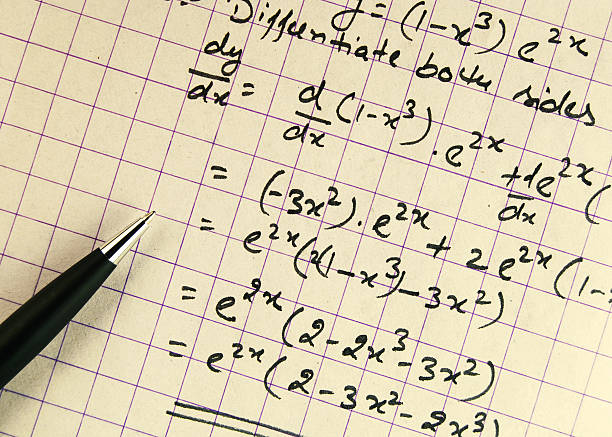 y = (1-x³) e²ˣ
Differentiate both sides
dy/dx = d/dx (1-x³) . e²ˣ + de²ˣ/dx (
= (-3x²) . e²ˣ + 2e²ˣ (1-
= e²ˣ (2(1-x³) - 3x²)
= e²ˣ (2 - 2x³ - 3x²)
= e²ˣ (2 - 3x² - 2x³)